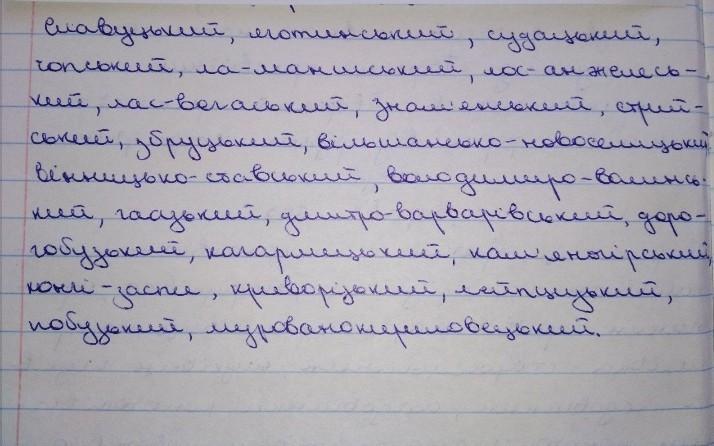 Славуцький, яготинський, судацький,
чопський, ла-маншський, лос-анжелесь-
кий, лас-вегаський, знам'янський, стрий-
ський, збруцький, вільшансько-новоселицький
вінницько-ставський, володимиро-волинсь-
кий, гаазький, дмитро-варварівський, доро-
гобузький, кагарлицький, кам'яногірський,
конча-заспи, криворізький, лейпцизький,
побузький, мурованокуриловецький.